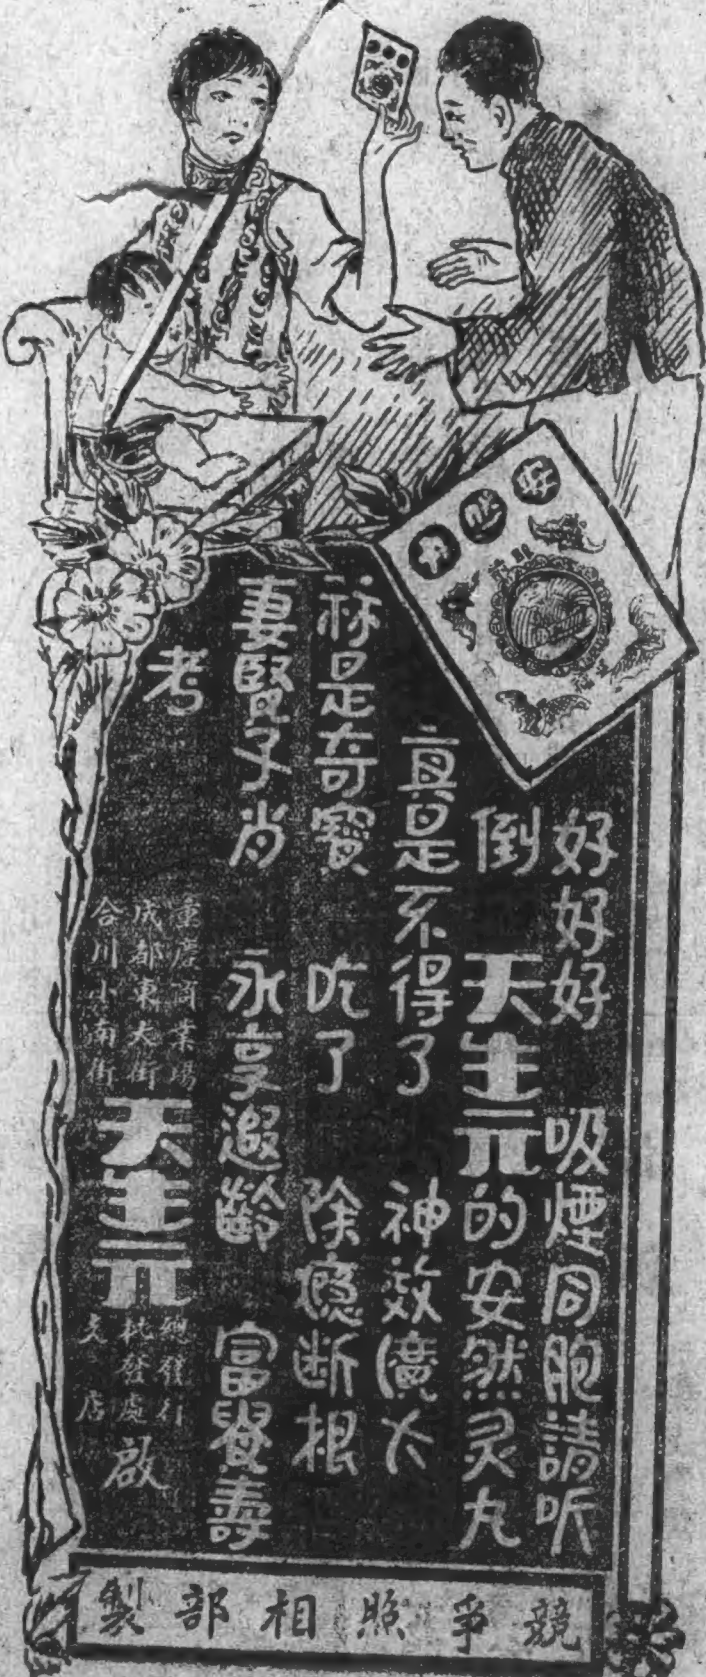 好好好　吸煙同胞請听
倒　天生元的安然灵丸
真是不得了　神效廣大
是奇寶　吃了　除瘾断根
妻賢子肖　永享遐齡　富貴壽
考
重慶商業場
成都東大街
合川小南街
天生元
總發行
批發處
支店
啟
競爭照相部製